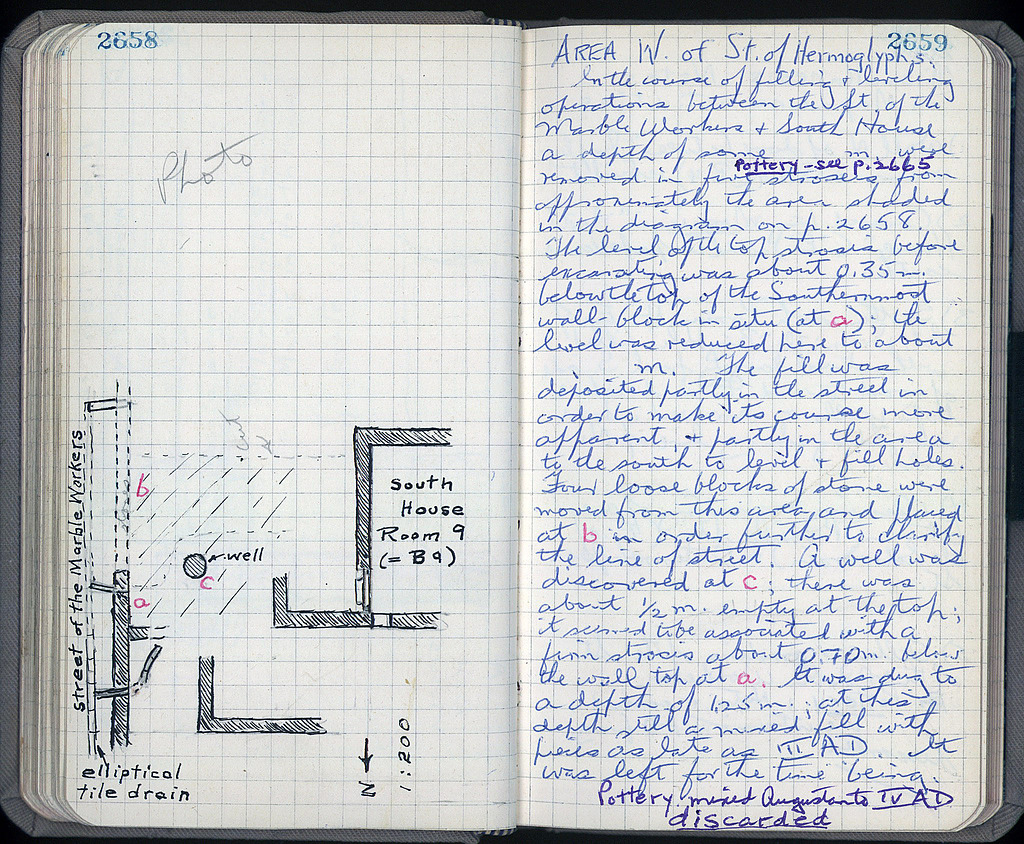 2658
Photo
b
well
c
a
South
House
Room 9
(= B9)
Street of the Marble Workers
elliptical
tile drain
N
1:200
2659
AREA W. of St. of Hermoglyphs.
In the course of filling + leveling
operations between the St. of the
Marble Workers + South House
a depth of some m. were
Pottery - see p. 2665
removed in five stroses from
approximately the area shaded
in the diagram on p. 2658.
The level of the top strosis before
excavating was about 0.35 m.
below the top of the Southernmost
wall-block in situ (at a); the
level was reduced here to about
m. The fill was
deposited partly in the street in
order to make its course more
apparent, + partly in the area
to the south to level + fill holes.
Four loose blocks of stone were
moved from this area and placed
at b in order further to clarify
the line of street. A well was
discovered at c; there was
about ½ m. empty at the top;
it seemed to be associated with a
firm strosis about 0.70 m. below
the wall top at a. It was dug to
a depth of 1.25 m.; at this
depth still a mixed fill with
pieces as late as III AD. It
was left for the time being.
Pottery mixed Augustan to IV AD
discarded